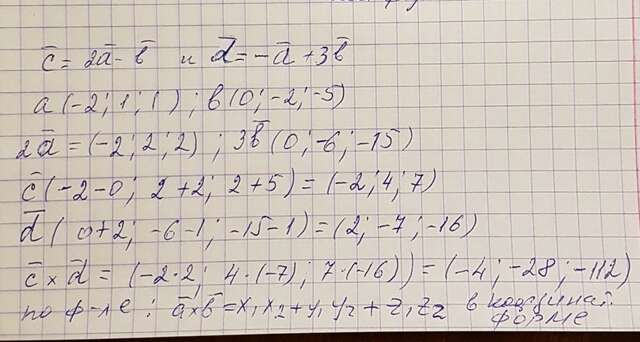 c̅ = 2a̅ - b̅ и d̅ = -a̅ + 3b̅
a (-2; 1; 1) ; b (0; -2; -5)
2a̅ = (-2; 2; 2) ; 3b̅ (0; -6; -15)
c̅ (-2-0; 2+2; 2+5) = (-2; 4; 7)
d̅ ( 0+2; -6-1; -15-1) = (2; -7; -16)
c̅ × d̅ = (-2·2; 4·(-7); 7·(-16)) = (-4; -28; -112)
по ф-ле : a̅×b̅ = x₁x₂ + y₁y₂ + z₁z₂ в координат. форме